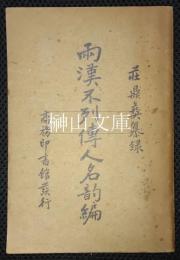 莊鼎彝纂錄
兩漢不列傳人名韵編
商務印書館發行
榊山文庫